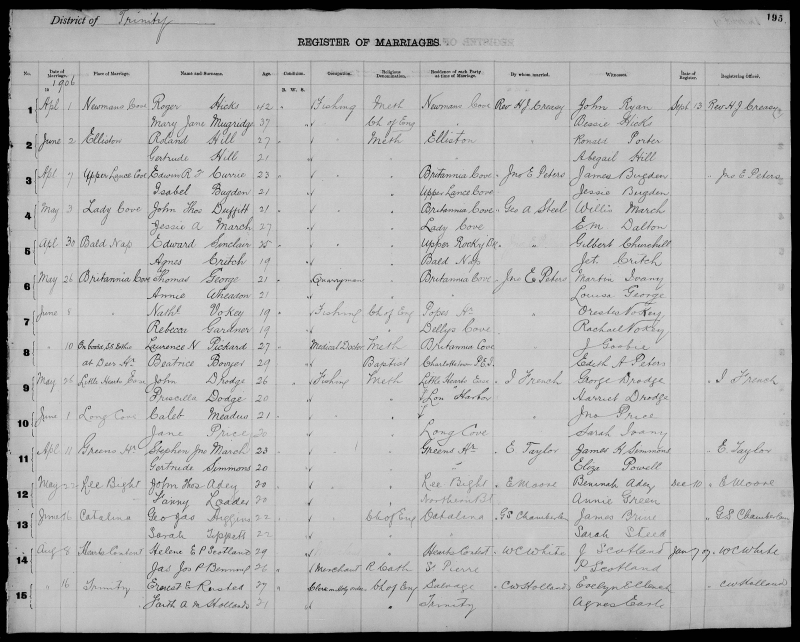 195
District of Trinity
REGISTER OF MARRIAGES.
No. Date of Marriage. Place of Marriage. Name and Surname. Age. Condition. Occupation. Religious Denomination. Residence of each Party at time of Marriage. By whom married. Witnesses. Date of Register. Registering Officer.
1906 B. W. S.
1 Apl 1 Newmans Cove Roger Hicks 42 " Fishing Meth Newmans Cove Rev H J Creasy John Ryan Sept 13 Rev H J Creasy
Mary Jane Mugridge 37 Ch of Eng " Bessie Hicks
2 June 2 Elliston Roland Hill 27 " " Meth Elliston " Ronald Porter
Gertrude Hill 21 " " Abegail Hill
3 Apl 7 Upper Lance Cove Edwin R F Currie 23 " " " Britannia Cove " Jno E Peters James Bugden " Jno E Peters
Isabel Bugden 21 " Upper Lance Cove Jessie Bugden
4 May 3 Lady Cove John Thos Duffitt 21 " " " Britannia Cove " Geo A Steel Willis March
Jessie A March 27 " Lady Cove E M Dalton
5 Apl 30 Bald Nap Edward Sinclair 25 " " " Upper Rocky Bk " " Gilbert Churchill
Agnes Critch 19 " Bald Nap Jet. Critch
6 May 26 Britannia Cove Thomas George 21 " Quarryman " Britannia Cove " Jno E Peters Martin Ivany
Annie Wheaton 21 " " Louisa George
7 June 8 " Nathl Vokey 19 " Fishing Ch of Eng Popes Hr " Orestes Vokey
Rebecca Gardner 19 " Dellys Cove Rachael Vokey
8 " 10 On board SS Ethie Laurence N Pickard 27 " Medical Doctor Meth Britannia Cove " J Goobie
at Deer Hr Beatrice Bowyer 29 Baptist Charlottetown P.E.I. Edith A Peters
9 May 26 Little Hearts Ease John Drodge 26 " Fishing Meth Little Hearts Ease " I French George Drodge " I French
Priscilla Dodge 20 " Harriet Drodge
10 June 1 Long Cove Calet Meadus 21 " " " " Jno Price
Jane Price 20 " Long Cove Sarah Ivany
11 Apl 11 Greens Hr Stephen Jno March 23 " " " Greens Hr " E Taylor James H Simmons " E Taylor
Gertrude Simmons 20 " " Eliza Powell
12 May 22 Lee Bight John Thos Adey 20 " " " Lee Bight " E Moore Beninah Adey Dec 10 " E Moore
Fanny Loader 20 " Northern Bt Annie Green
13 June 16 Catalina Geo Jas Higgins 22 " " Ch of Eng Catalina " G S Chamberlain James Brine " G S Chamberlain
Sarah Tippett 22 " " Sarah Steed
14 Aug 8 Hearts Content Helene E P Scotland 29 " Hearts Content " W C White J Scotland Jan 7 07 " W C White
Jas Jos P Benning 26 Merchant R Cath St Pierre P Scotland
15 " 16 Trinity Ernest E Rusted 27 " Ch of Eng Salvage " C W Holland Evelyn E Clench " C W Holland
Faith A M Hollands 21 " Trinity Agnes Earle